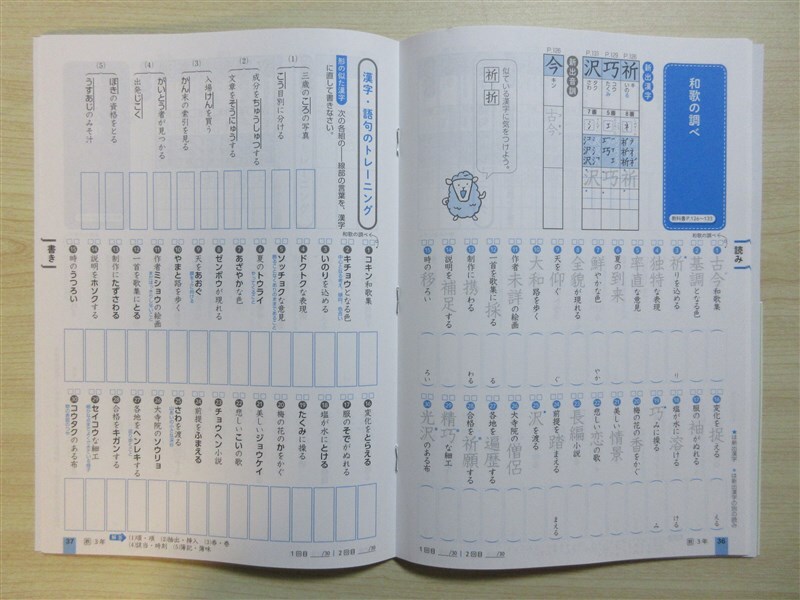 和歌の調べ
教科書P.126〜133
新出漢字
祈
巧
沢
新出音訓
今
古今
似ている漢字に気をつけよう。
祈―折
読み
❶古今和歌集
❷基調となる色
❸祈りを込める
❹独特な表現
❺率直な意見
❻夏の到来
❼鮮やかな色
❽全貌が現れる
❾天を仰ぐ
❿大和路を歩く
⓫作者未詳の絵画
⓬一首を歌集に採る
⓭制作に携わる
⓮説明を補足する
⓯時の移ろい
⓰変化を捉える
⓱服の袖がぬれる
⓲塩が水に溶ける
⓳巧みに操る
⓴梅の花の香をかぐ
㉑美しい情景
㉒悲しい恋の歌
㉓長編小説
㉔前提を踏まえる
㉕沢を渡る
㉖大寺院の僧侶
㉗各地を遍歴する
㉘合格を祈願する
㉙精巧な細工
㉚光沢のある布
1回目 /30 2回目 /30
3年
36
漢字・語句のトレーニング
和歌の調べ
形の似た漢字
次の各組の――線部の言葉を、漢字に直して書きなさい。
(1)
三歳のころの写真
こう目別に分ける
(2)
成分をちゅうしゅつする
文章をそうにゅうする
(3)
入場けんを買う
かん末の索引を見る
(4)
がいとう者が見つかる
出発じこく
(5)
ぼきの資格をとる
うすあじのみそ汁
書き
❶コキン和歌集
❷キチョウとなる色
❸いのりを込める
❹ドクトクな表現
❺ソッチョクな意見
❻夏のトウライ
❼あざやかな色
❽ゼンボウが現れる
❾天をあおぐ
❿やまと路を歩く
⓫作者ミショウの絵画
⓬一首を歌集にとる
⓭制作にたずさわる
⓮説明をホソクする
⓯時のうつろい
⓰変化をとらえる
⓱服のそでがぬれる
⓲塩が水にとける
⓳たくみに操る
⓴梅の花のかをかぐ
㉑美しいジョウケイ
㉒悲しいこいの歌
㉓チョウヘン小説
㉔前提をふまえる
㉕さわを渡る
㉖大寺院のソウリョ
㉗各地をヘンレキする
㉘合格をキガンする
㉙セイコウな細工
㉚コウタクのある布
1回目 /30 2回目 /30
37
3年